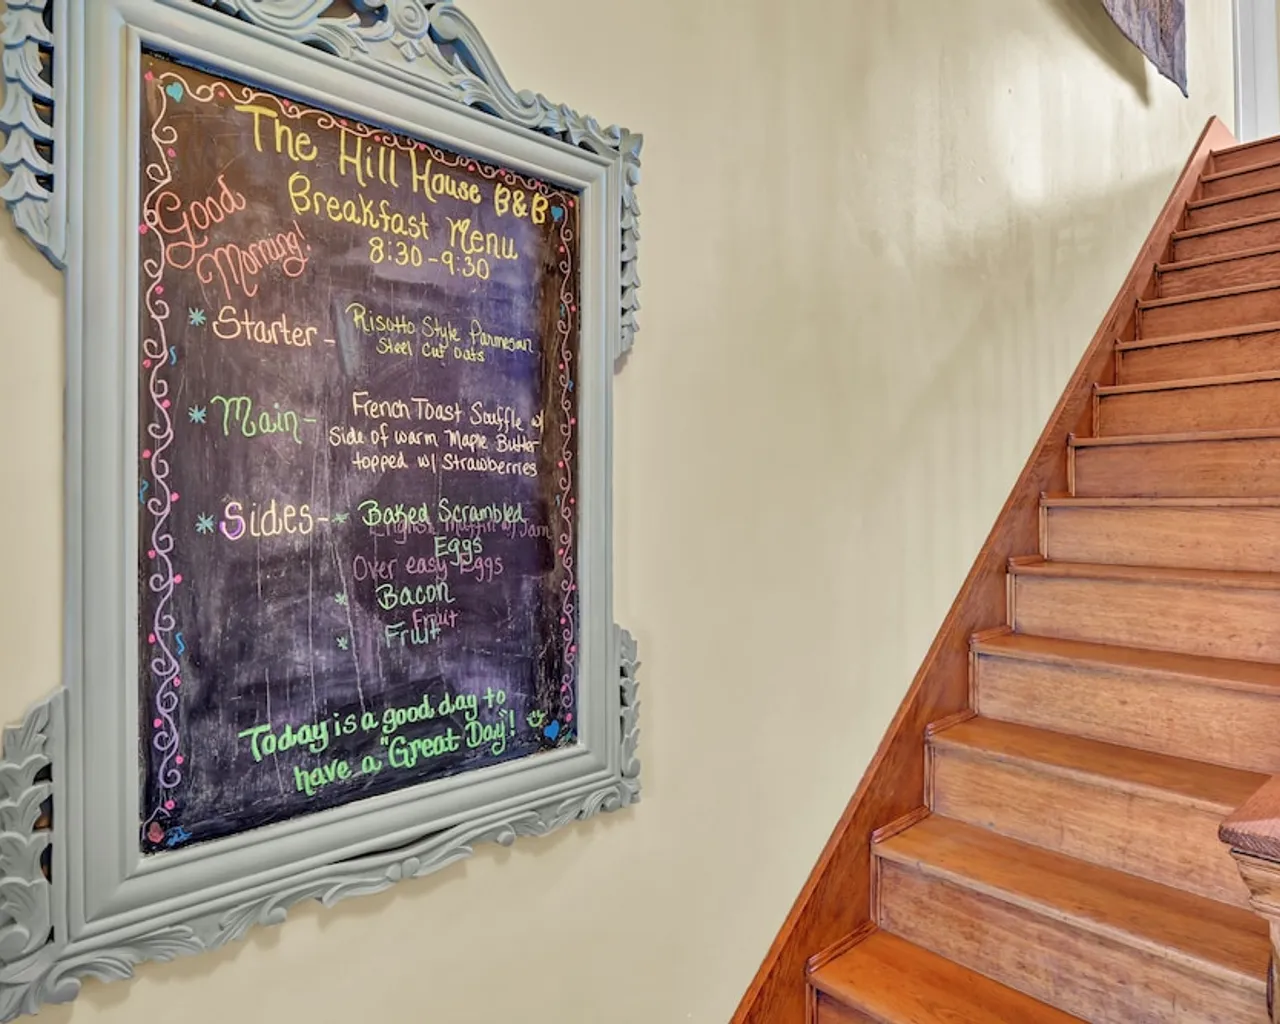 The Hill House B&B
Breakfast Menu
8:30-9:30
Good
Morning!
Starter - Risotto Style Parmesan
Steel Cut Oats
Main - French Toast Souffle w/
Side of warm Maple Butter
topped w/ Strawberries
Sides - Baked Scrambled
English Muffin w/ Jam
Eggs
Over easy Eggs
Bacon
Fruit
Fruit
Today is a good day to
have a "Great Day"!